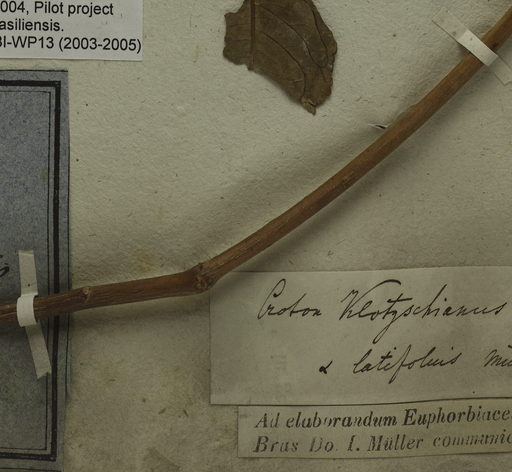 004, Pilot project
asiliensis.
BI-WP13 (2003-2005)
Croton Klotzschianus
α latifolius Mü
Ad elaborandum Euphorbiace
Bras Do. I. Müller communic